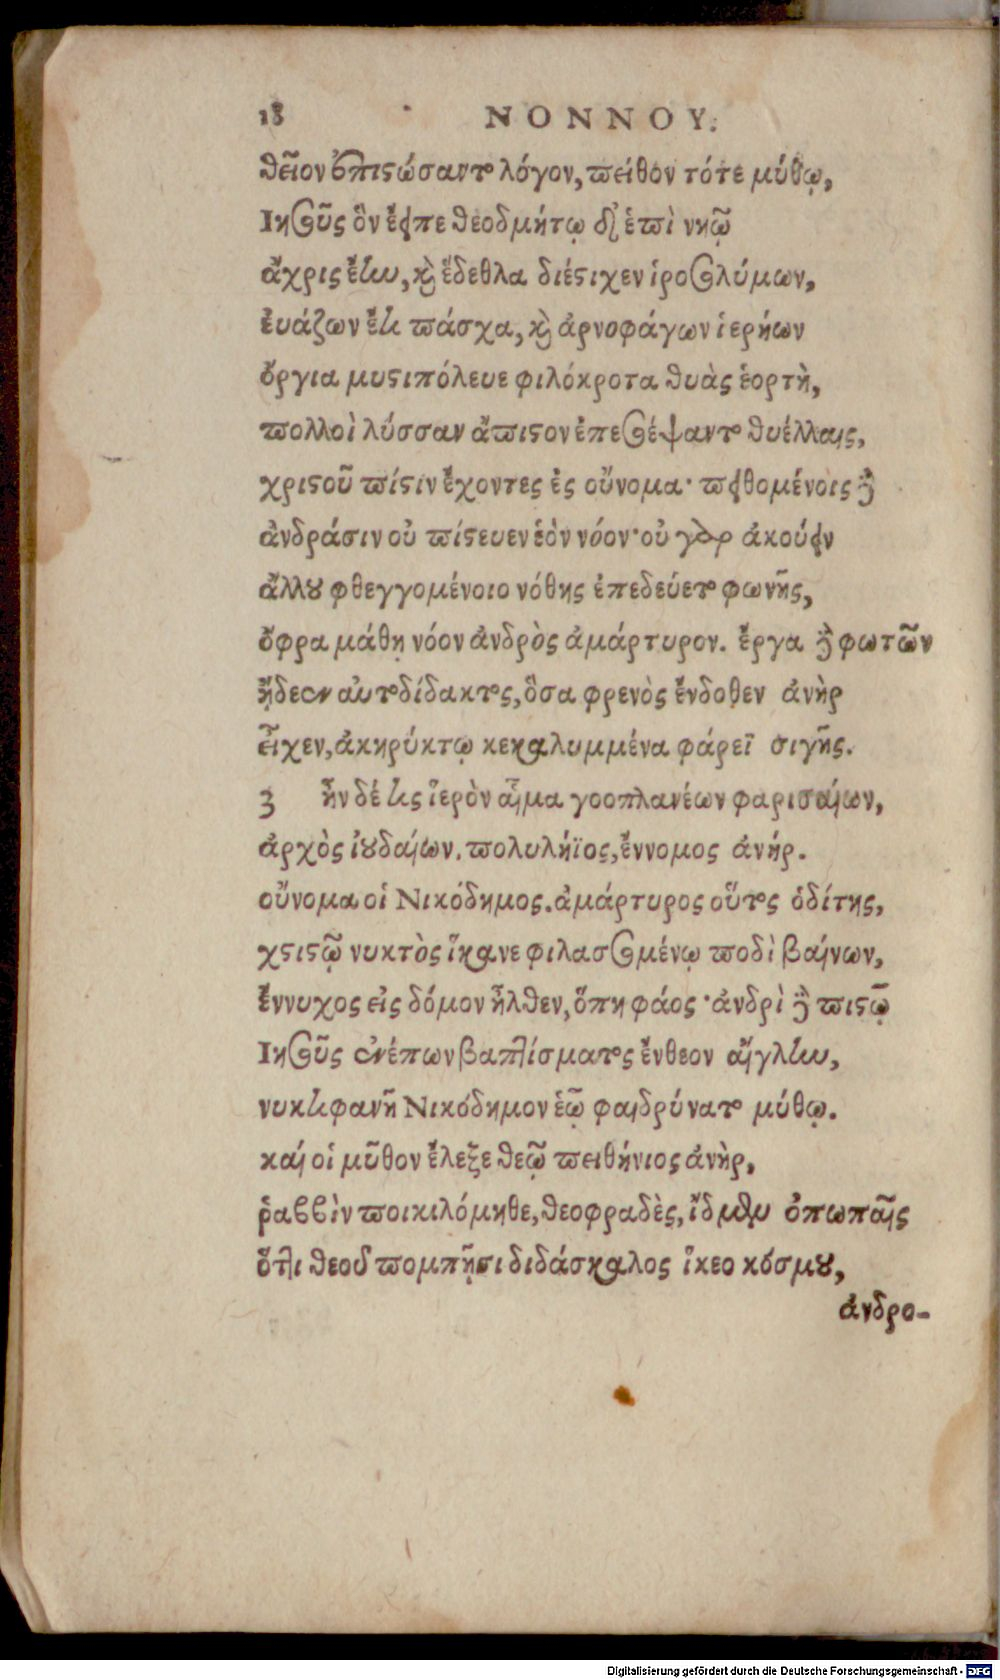 18 ΝΟΝΝΟΥ.
θεῖον ἐπιστώσαντο λόγον, πείθον τότε μύθῳ,
Ιησοῦς ὃν ἔειπε θεοδμήτῳ δ' ἐπὶ νηῷ
ἄχρις ἔην, καὶ ἔδεθλα διέστιχεν ἱροσολύμων,
ἐυάζων ἔτι πάσχα, καὶ ἀρνοφάγων ἱερήων
ὄργια μυστιπόλευε φιλόκροτα θυὰς ἑορτὴ,
πολλοὶ λύσσαν ἄπιστον ἐπεσέψαντο θυέλλαις,
χριστοῦ πίστιν ἔχοντες ἐς οὔνομα· πειθομένοις δὲ
ἀνδράσιν οὐ πίστευεν ἑὸν νόον· οὐ γὰρ ἀκούειν
ἄλλου φθεγγομένοιο νόθης ἐπεδεύετο φωνῆς,
ὄφρα μάθῃ νόον ἀνδρὸς ἀμάρτυρον. ἔργα δὲ φωτῶν
ᾔδεεν αὐτοδίδακτος, ὅσα φρενὸς ἔνδοθεν ἀνὴρ
εἶχεν, ἀκηρύκτῳ κεκαλυμμένα φάρεϊ σιγῆς.
3 ἦν δέ τις ἱερὸν αἷμα γοοπλανέων φαρισαίων,
ἀρχὸς ἰουδαίων. πολυλήϊος, ἔννομος ἀνήρ.
οὔνομα οἱ Νικόδημος. ἀμάρτυρος οὗτος ὁδίτης,
χστιστῷ νυκτὸς ἵκανε φιλασσομένῳ ποδὶ βαίνων,
ἔννυχος εἰς δόμον ἦλθεν, ὅπη φάος· ἀνδρὶ δὲ πιστῷ
Ιησοῦς ἐνέπων βαπτίσματος ἔνθεον αἴγλην,
νυκτιφανῆ Νικόδημον ἑῷ φαιδρύνατο μύθῳ.
καί οἱ μῦθον ἔλεξε θεῷ πειθήνιος ἀνὴρ,
ῥαββὶν ποικιλόμηθε, θεοφραδὲς, ἴδμεν ὀπωπαῖς
ὅτι θεοῦ πομπῇσι διδάσκαλος ἵκεο κόσμου,
ἀνδρο-
Digitalisierung gefördert durch die Deutsche Forschungsgemeinschaft - DFG